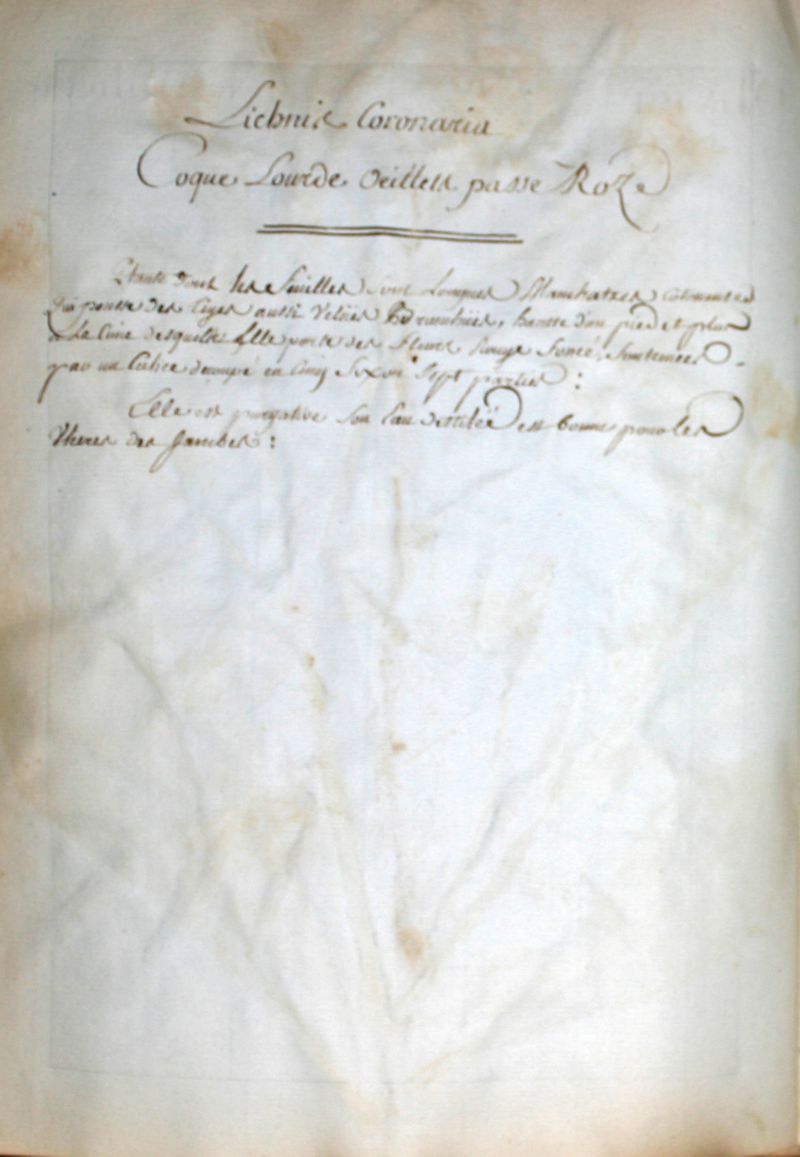 Lichnis Coronaria
Coque Lourde Oeillets passe Roze
Plante dont les feuilles sont Longues Blanchatres Cotonneuses
Qui pousse des tiges aussi Velües & Branchües, haute d'un pied et plus
a La Cime desquelles Elle porte des fleurs Rouge foncé, Soutenües
par un Calice decoupé en Cinq Six ou Sept parties :
Elle est purgative son Eau distilée est bonne pour les
Ulceres des Jambes :